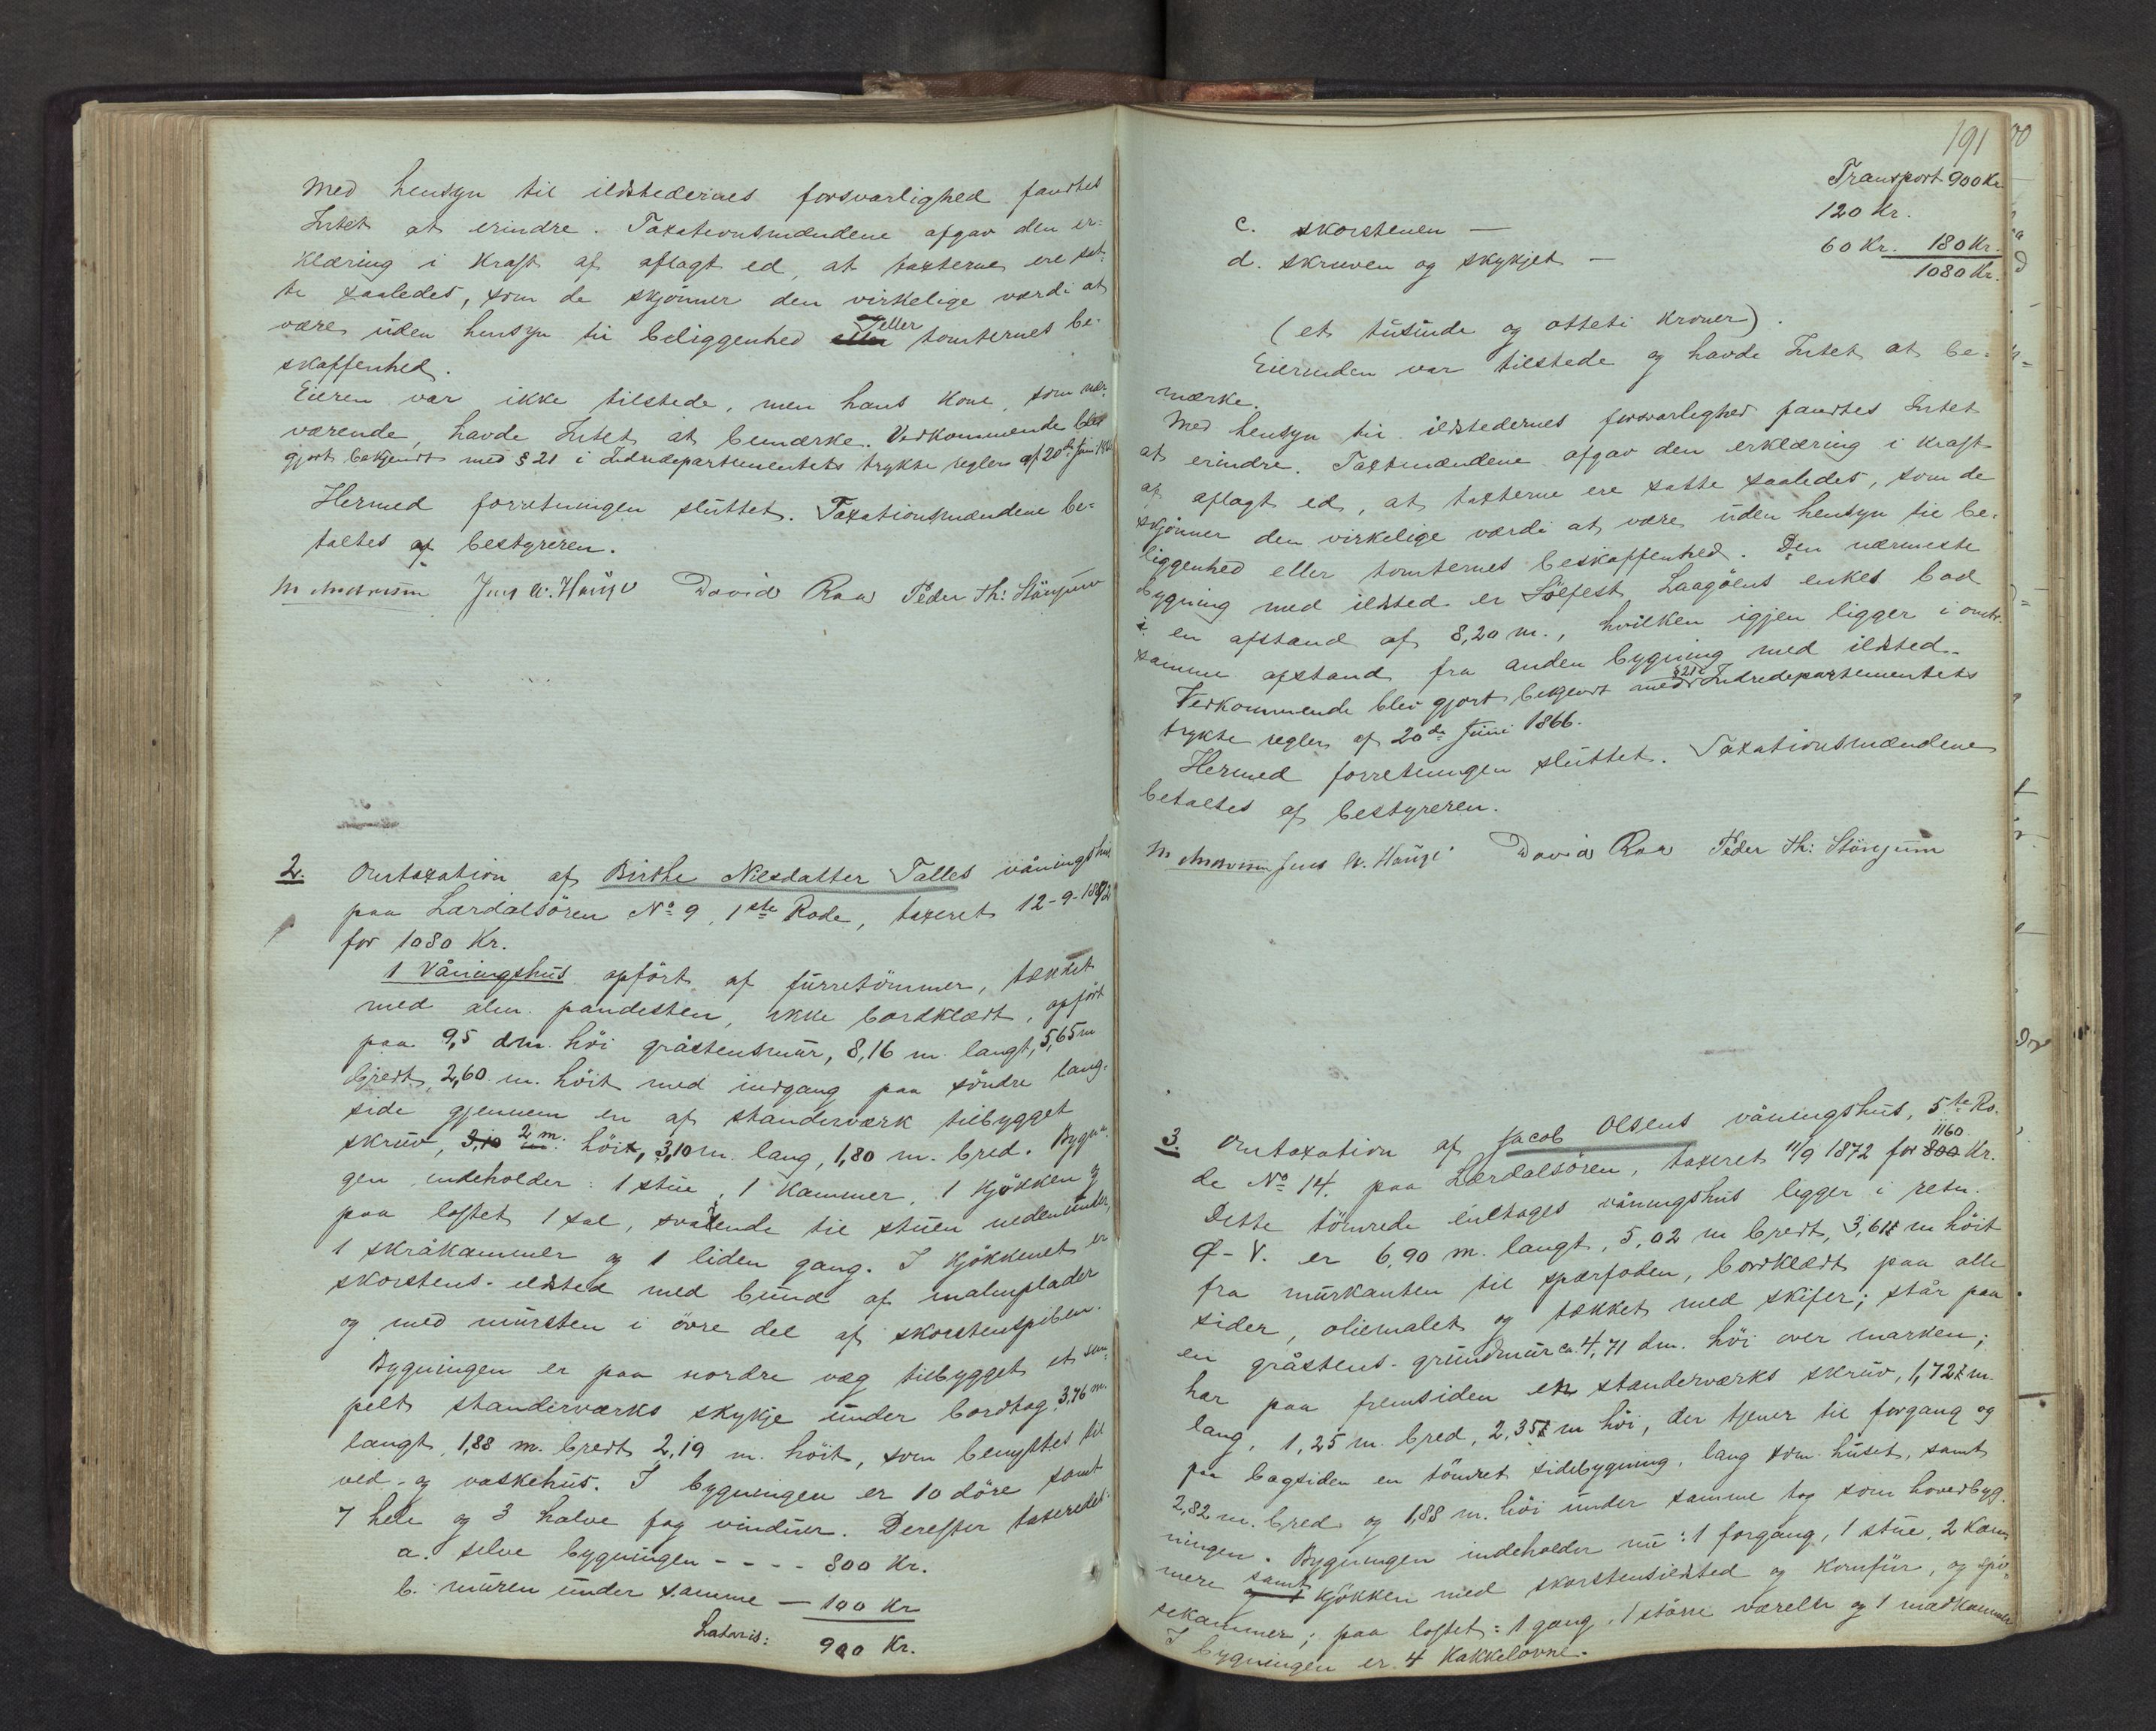 Med hensyn til ildstedernes forsvarlighed fandtes
Intet at erindre. Taxationsmændene afgav den er-
klæring i kraft af aflagt ed, at taxterne ere sat-
te saaledes, som de skjönner den virkelige værdi at
være uden hensyn til beliggenhed eller tomternes be-
skaffenhed.
Eieren var ikke tilstede, men hans kone, som nær-
værende, havde Intet at bemærke. Vedkommende blev
gjort bekjendt med § 21 i Indredepartementets trykte regler af 20de Juni 1866
Hermed forretningen sluttet. Taxationsmændene be-
taltes af bestyreren.
David Raa Peder Th: Stönjum
2. Omtaxation af Birthe Nilsdatter Talles våningshus
paa Lærdalsören No 9, 1ste Rode, taxeret 12-9-1872
for 1080 Kr.
1 Våningshus opfört af furretömmer, tækket
med alm. pandesten, ikke bordklædt, opfört
paa 9,5 dm. höi gråstensmur, 8,16 m. langt, 5,65 m
bredt, 2,60 m. höit med indgang paa söndre lang-
side gjennem en af standerværk tilbygget
skruv, 2 m. höi, 3,10 m. lang, 1,80 m. bred. Bygnin-
gen indeholder: 1 stue, 1 kammer, 1 kjökken og
paa loftet 1 sal, svarende til stuen nedenunder,
1 skråkammer og 1 liden gang. I kjökkenet er
skorstens-ildsted med bund af malmplader
og med mursten i övre del af skorstenspiben.
Bygningen er paa nordre væg tilbygget et sim-
pelt standerværks skykje under bordtag, 3,76 m.
langt, 1,88 m. bredt, 2,19 m. höit, som benyttes til
ved- og vaskehus. I bygningen er 10 döre samt
7 hele og 3 halve fag vinduer. Derefter taxeredes:
a. selve bygningen - - - - 800 Kr.
b. muren under samme — 100 Kr
Lateris: 900 Kr.
191
Transport 900 Kr
c. skorstenen — 120 Kr.
d. skruven og skykjet — 60 Kr. 180 Kr.
1080 Kr.
(et tusinde og otteti kroner).
Eierinden var tilstede og havde Intet at be-
mærke.
Med hensyn til ildstedernes forsvarlighed fandtes Intet
at erindre. Taxtmændene afgav den erklæring i kraft
af aflagt ed, at taxterne ere satte saaledes, som de
skjönner den virkelige værdi at være uden hensyn til be-
liggenhed eller tomternes beskaffenhed. Den nærmeste
bygning med ildsted er Sölfest Laagöens enkes bod
i en afstand af 8,20 m., hvilken igjen ligger i omtr.
samme afstand fra anden bygning med ildsted.
Vedkommende blev gjort bekjendt med § 21 i Indredepartementets
trykte regler af 20de Juni 1866.
Hermed forretningen sluttet. Taxationsmændene
betaltes af bestyreren.
David Raa Peder Th: Stönjum
3. Omtaxation af Jacob Olsens våningshus, 5te Ro-
de No 14. paa Lærdalsören, taxeret 11/9 1872 for 1160 Kr.
Dette tömrede enetages våningshus ligger i retn.
Ö-V. er 6,90 m. langt, 5,02 m bredt, 3,61 m höit
fra murkanten til spærfoden, bordklædt paa alle
sider, oliemalet og tækket med skifer; står paa
en gråstens-grundmur ca. 4,71 dm. höi over marken;
har paa fremsiden en standerværks skruv, 1,72 m.
lang, 1,25 m. bred, 2,35 m höi, der tjener til forgang og
paa bagsiden en tömret sidebygning, lang som huset, samt
2,82 m. bred og 1,88 m. höi under samme tag som hovedbyg-
ningen. Bygningen indeholder nu: 1 forgang, 1 stue, 2 kam-
mere samt kjökken med skorstensildsted og komfur, og spi-
sekammer; paa loftet: 1 gang, 1 större værelse og 1 madkammer
I bygningen er 4 kakkelovne.